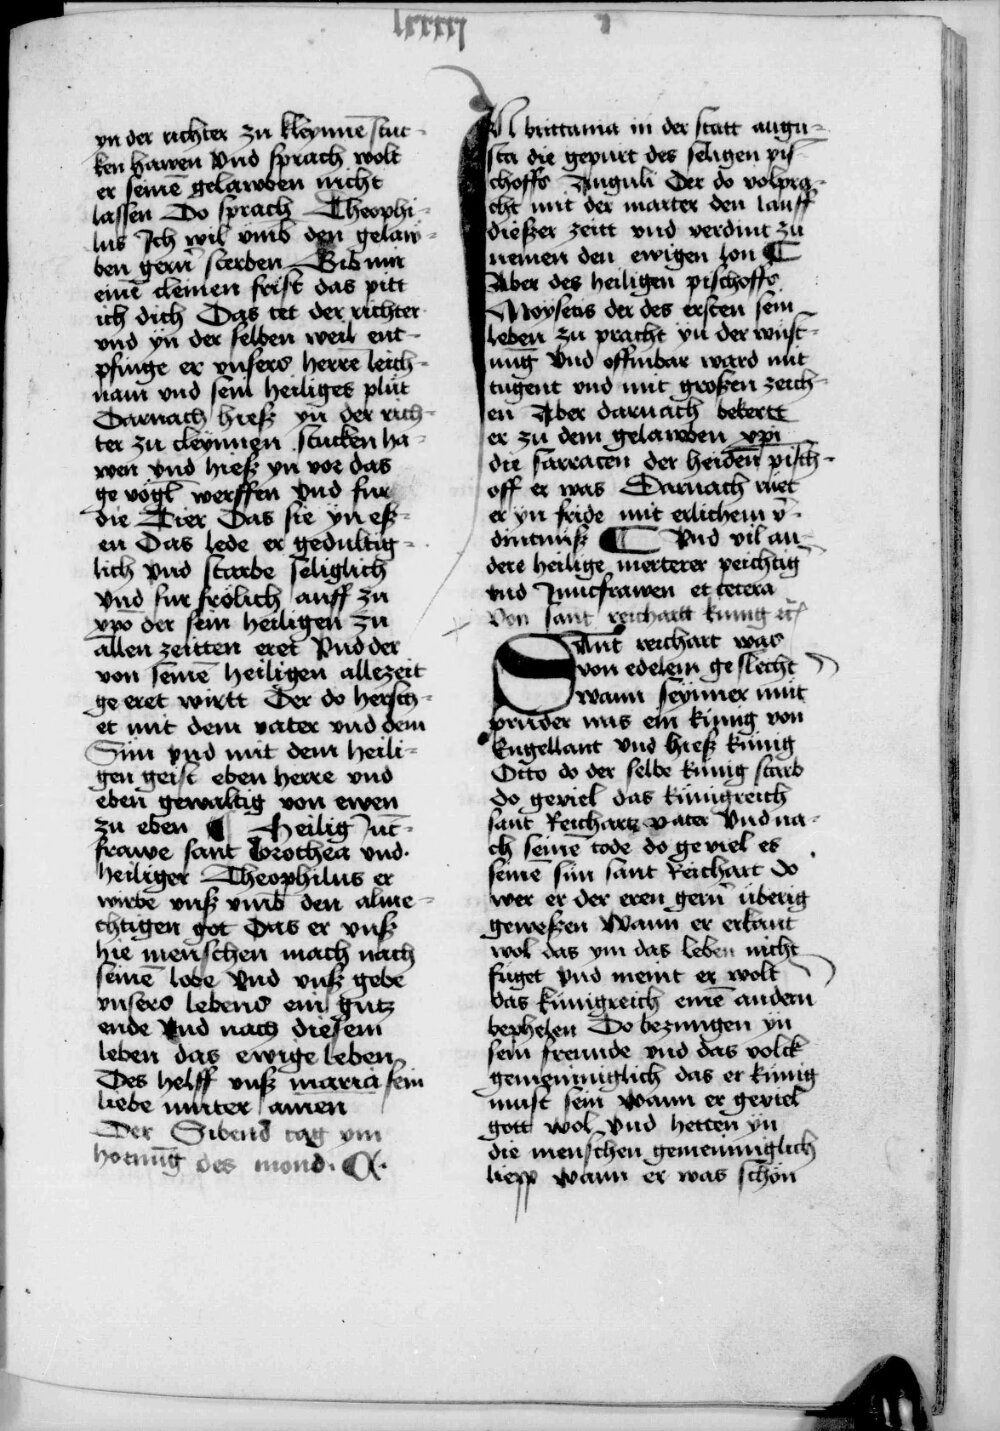 lxxxxj
yn der richter zu kleynnē stuc-
ken hawen Vnd sprach wolt
er seinē gelawben nicht
lassen Do sprach Theophi-
lus Ich wil vmb den gelaw-
ben gern̄ sterben Gib mir
einē cleinen frist das pitt
ich dich Das tet der richter
vnd yn der selben weil ent-
pfinge er vnsers herre leich-
nam vnd sein heiliges plůt
Darnach hieß yn der rich-
ter zu cleynnen stucken ha-
wen vnd hieß yn vor das
ge vögl̄ werffen Vnd fur
die Tier Das sie yn eß-
en Das lede er gedultig-
lich Vnd starbe seliglich
Vnd fur frölich auff zu
xp̄o der sein heiligen zu
allen zeitten eret Vnd der
von seinē heiligen allezeit
ge eret wirtt Der do hersch-
et mit dem vater vnd dem
Sun vnd mit dem heili-
gen geist eben herre vnd
eben gewaltig von ewen
zu eben ¶ Heilig Juc̄-
frawe sant Dorothea vnd
heiliger Theophilus er
wirbe vnß vmb den alme-
chtigen got Das er vnß
hie menschen mach nach
seinē lobe Vnd vnß gebe
vnsers lebens ein gutz
ende Vnd nach diesem
leben das ewige leben
Des helff vnß maria sein
liebe muter amen
Der Sibend tag vm
hornūg des mond.
N brittania in der statt augu-
sta die gepurt des seligen pis-
choffs Anguli Der do volpra-
cht mit der marter den lauff
dießer zeitt vnd verdint zu
nemen den ewigen lon ¶
Aber des heiligen pischoffs
Moysetis der des ersten sein
leben zu pracht yn der wust-
ung Vnd offinbar ward mit
tugent vnd mit großen zeich-
en Aber darnach bekertt
er zu dem gelawben xp̄i
die sarracen der heiden pisch-
off er was Darnach ruet
er yn fride mit erlichem v̄-
dintnuß ¶ Vnd vil an-
dere heilige merterer peichtiḡ
vnd Juncfrawen et cetera
Von sant reichartt kunig
Sant reichart was
von edelem ge slecht
wann seynner mut
pruder was ein kunig von
Engellant vnd hieß kunig
Otto do der selbe kunig starb
do geviel das kunigreich
sant Reichartz vater Vnd na-
ch seinē tode do ge viel es
seinē sun sant Reichart do
wer er der eren gern̄ überig
geweßen Wann er erkant
wol das ym das leben nicht
füget vnd meint er wolt
das kunigreich einē andern
bephelen Do bezungen yn
sein freunde vnd das volck
gemeiniglich das er kunig
must sein wann er geviel
gott wol Vnd hetten yn
die menschen gemeiniglich
liepp wann er was schön